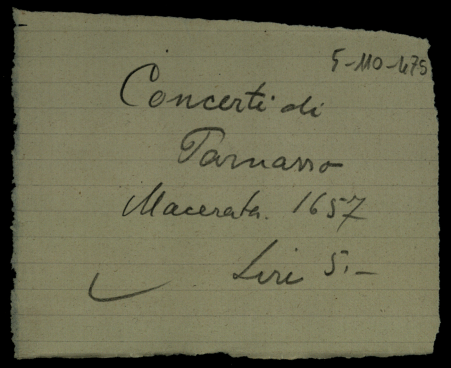 5-110-475
Concerti di
Parnasso
Macerata. 1657
Lire 5.-